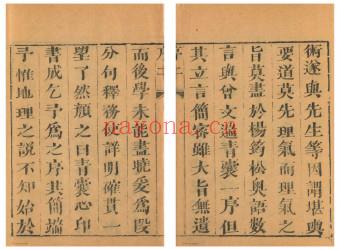 術遂與先生等因謂堪輿
要道莫先理氣而理氣之
旨莫盡於楊筠松奧語數
言與曾文辿青囊一序但
其立言簡雖大旨無遺
序 二
而後學未能盡曉爰為段
分句釋務使詳明確貫一
望了然顏之曰青囊心印
書成乞予為之序其簡端
予惟地理之說不知始於
nayona.cn